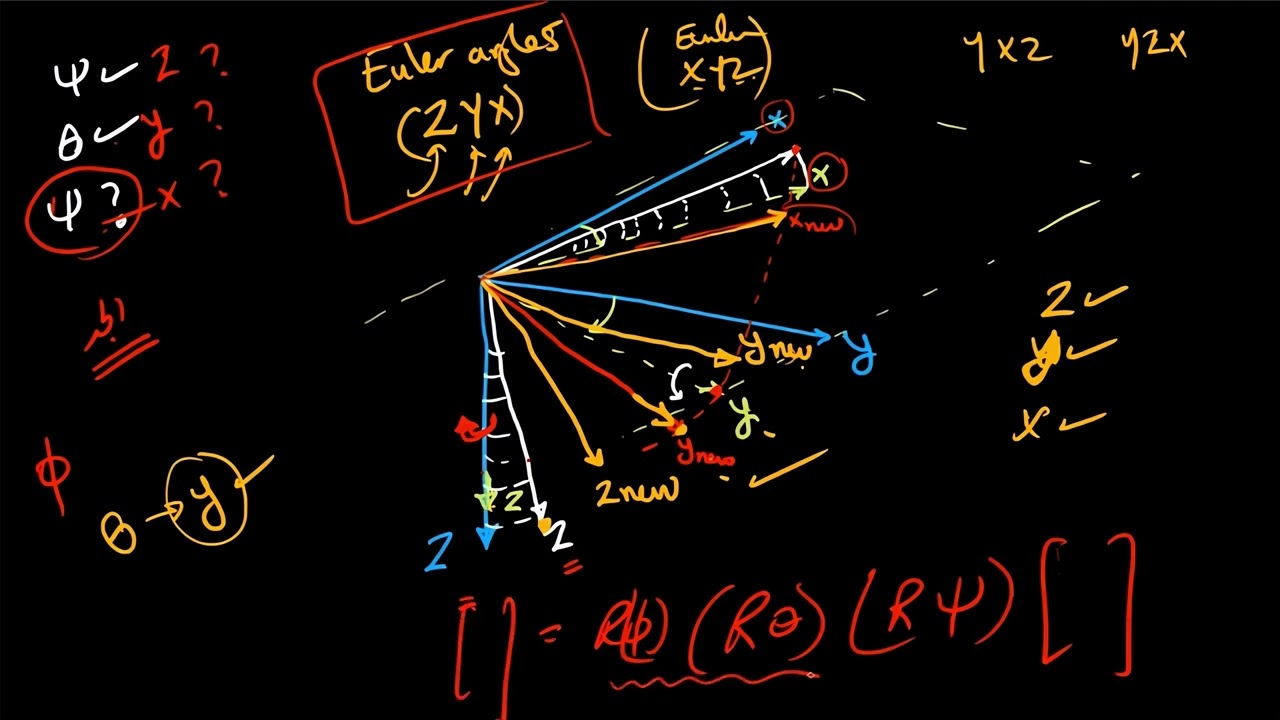 ψ ✓ Z ?
θ ✓ y ?
ψ ? x ?
Euler angles
(ZYX)
(Euler
XYZ)
YXZ
YZX
x
x
x new
y new
y
y
y new
Z new
Z
Z
Z
Z ✓
y ✓
x ✓
ϕ
θ → y ✓
[ ] = R(ϕ) (Rθ) (Rψ) [ ]